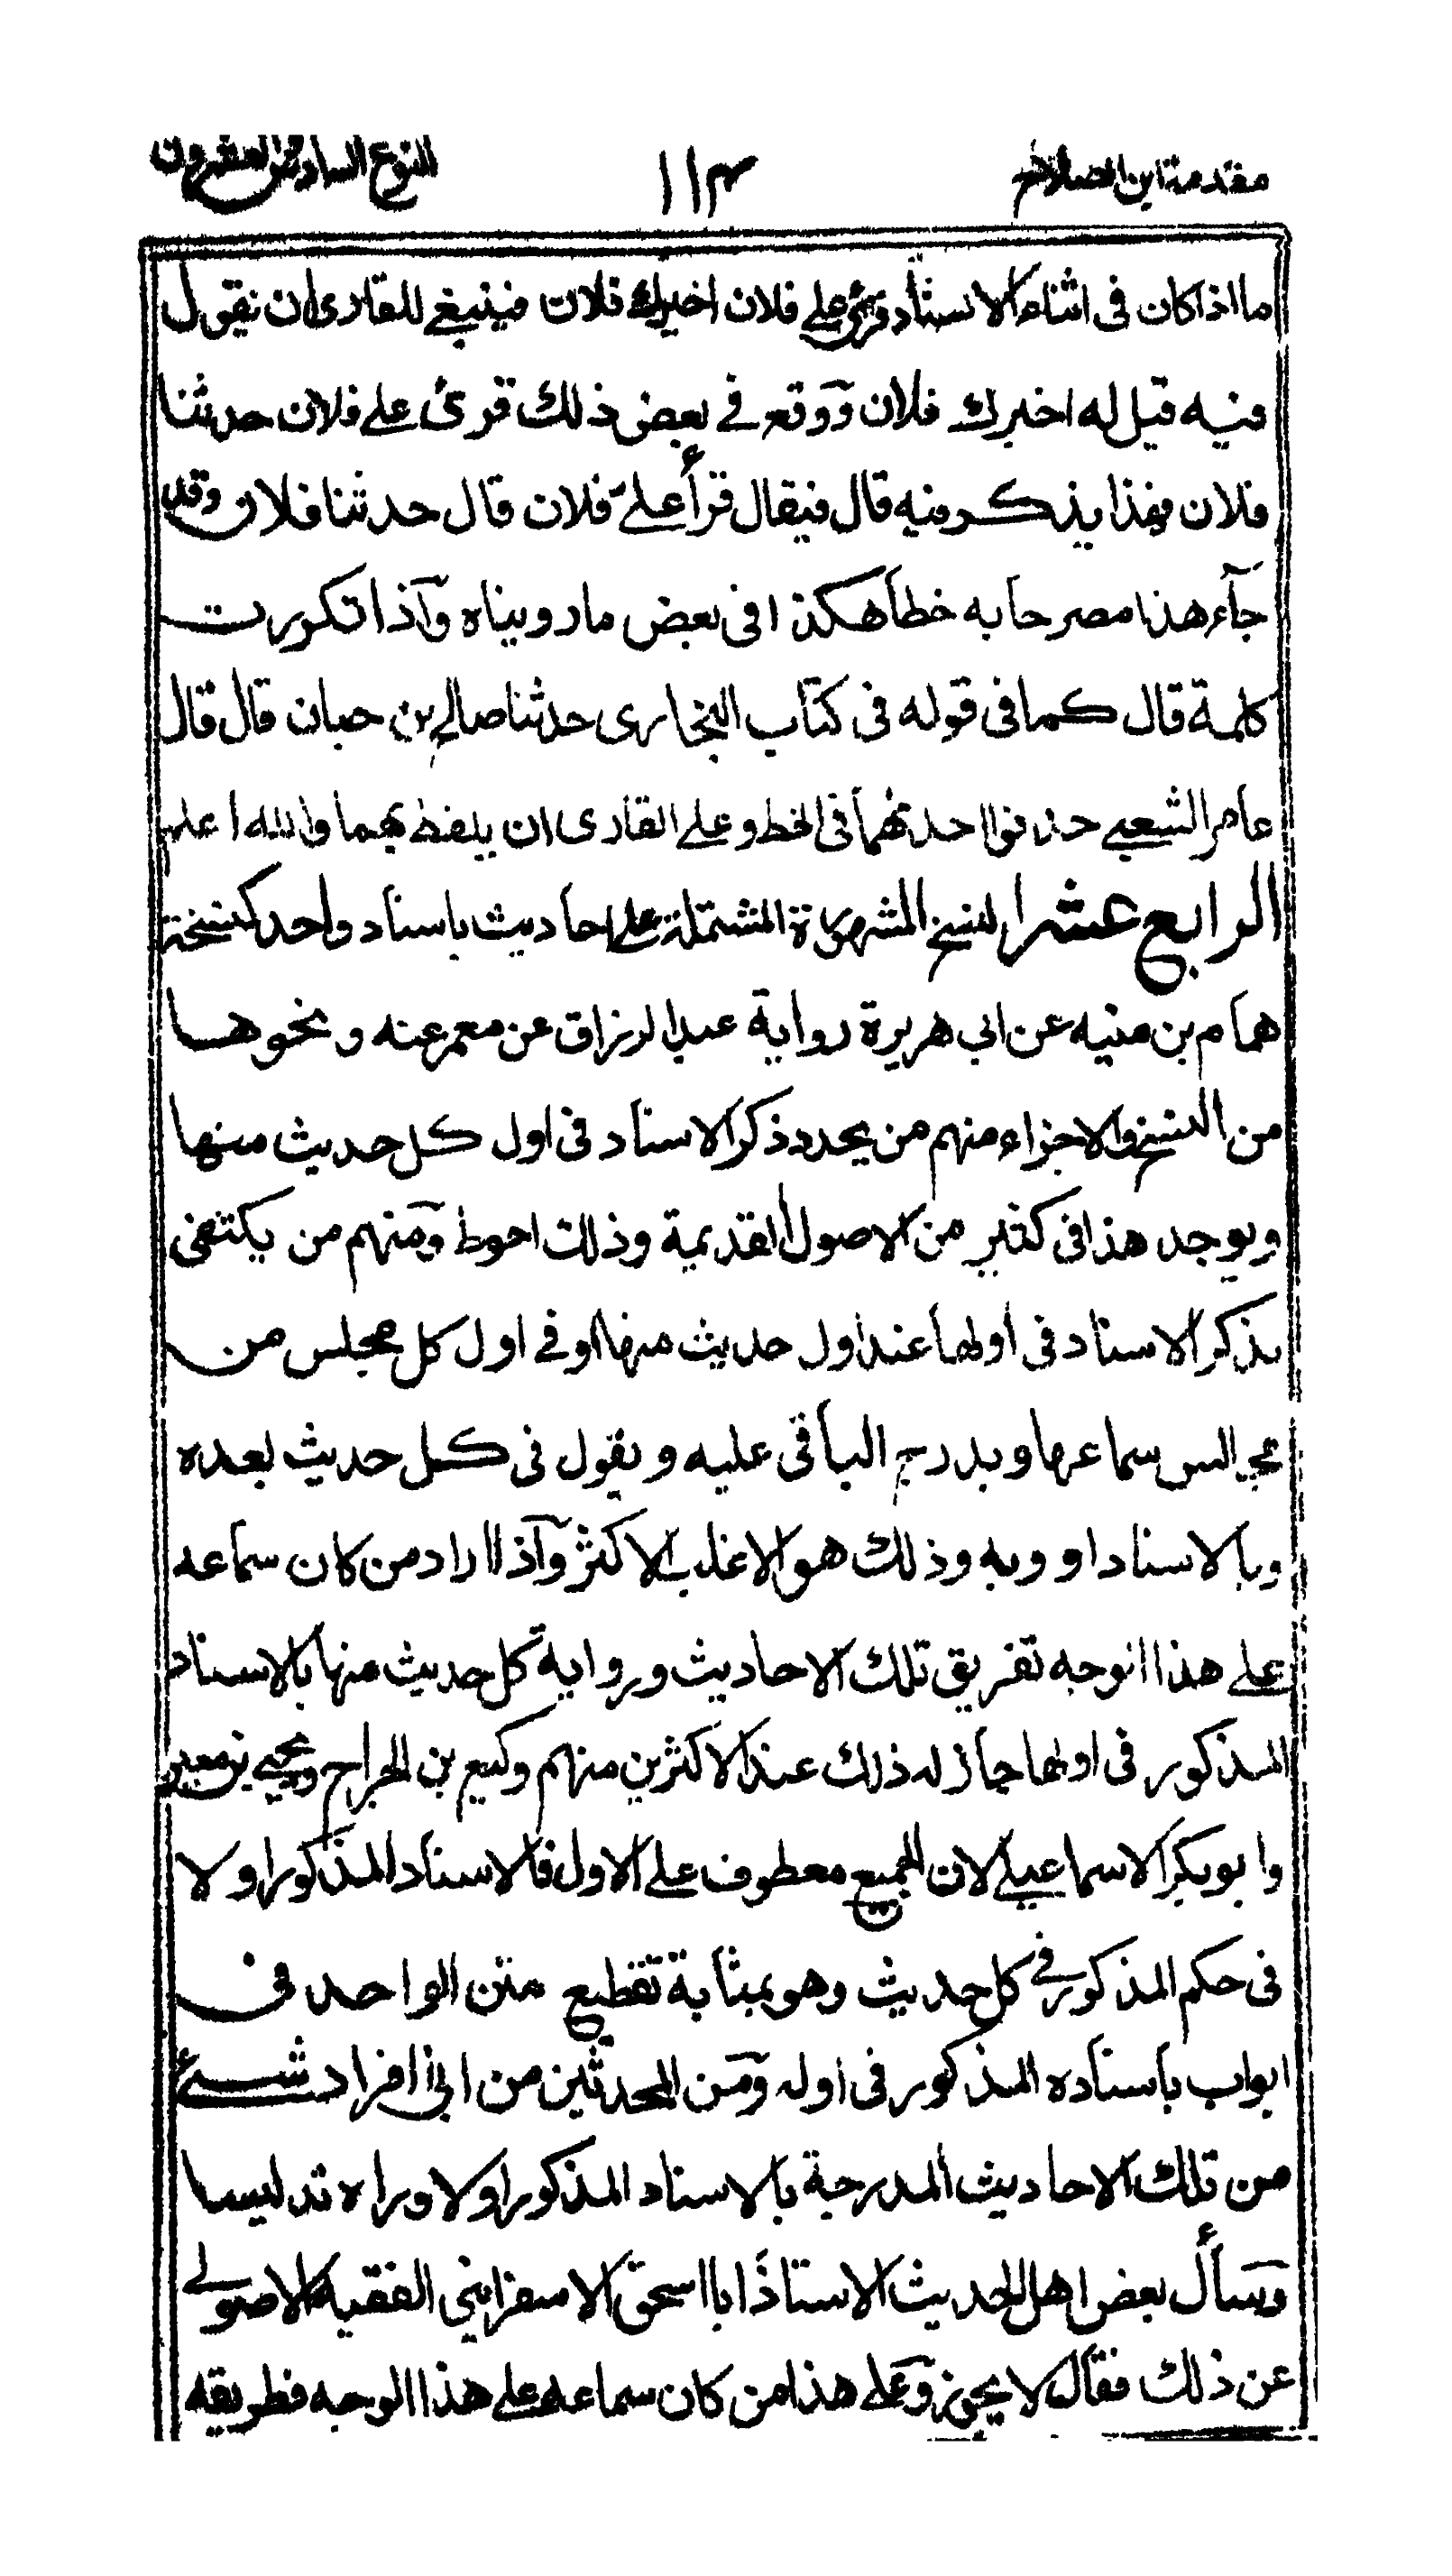 مقدمة ابن الصلاح ١١٣ النوع السادس والعشرون
ما اذا كان فى اثناء الاسناد قرئ على فلان اخبرك فلان فينبغى للقارى ان يقول
فيه قيل له اخبرك فلان ووقع فى بعض ذلك قرئ على فلان حدثنا
فلان فهذا يذكر فيه قال فيقال قرأ على فلان قال حدثنا فلان وقد
جآء هذا مصرحا به خطأ هكذا فى بعض ما رويناه وآذا تكررت
كلمة قال كما فى قوله فى كتاب البخارى حدثنا صالح بن حبان قال قال
عامر الشعبى حذفوا احدٰهما فى الخط وعلى القارى ان يلفظ بهما والله اعلم
الرابع عشر النسخ المشهورة المشتملة على احاديث باسناد واحد كنسخة
همام بن منبه عن ابى هريرة رواية عبد الرزاق عن معمر عنه ونحوها
من النسخ والاجزاء منهم من يجدد ذكر الاسناد فى اول كل حديث منها
ويوجد هذا فى كثير من الاصول القديمة وذلك احوط ومنهم من يكتفى
بذكر الاسناد فى اولها عند اول حديث منها او فى اول كل مجلس من
مجالس سماعها ويدرج الباقى عليه ويقول فى كل حديث بعده
وبالاسناد او وبه وذلك هو الاغلب الاكثر وآذا اراد من كان سماعه
على هذا الوجه تفريق تلك الاحاديث ورواية كل حديث منها بالاسناد
المذكور فى اولها جاز له ذلك عند الاكثرين منهم وكيع بن الجراح ويحيى بن معين
وابو بكر الاسماعيلى لان الجميع معطوف على الاول فالاسناد المذكور اولا
فى حكم المذكور فى كل حديث وهو بمثابة تقطيع متن الواحد فى
ابواب باسناده المذكور فى اوله ومن المحدثين من ابى افراد شئ
من تلك الاحاديث المدرجة بالاسناد المذكور اولا وراه تدليسا
وسأل بعض اهل الحديث الاستاذ ابا اسحق الاسفراينى الفقيه الاصولى
عن ذلك فقال لا يجوز وعلى هذا من كان سماعه على هذا الوجه فطريقه